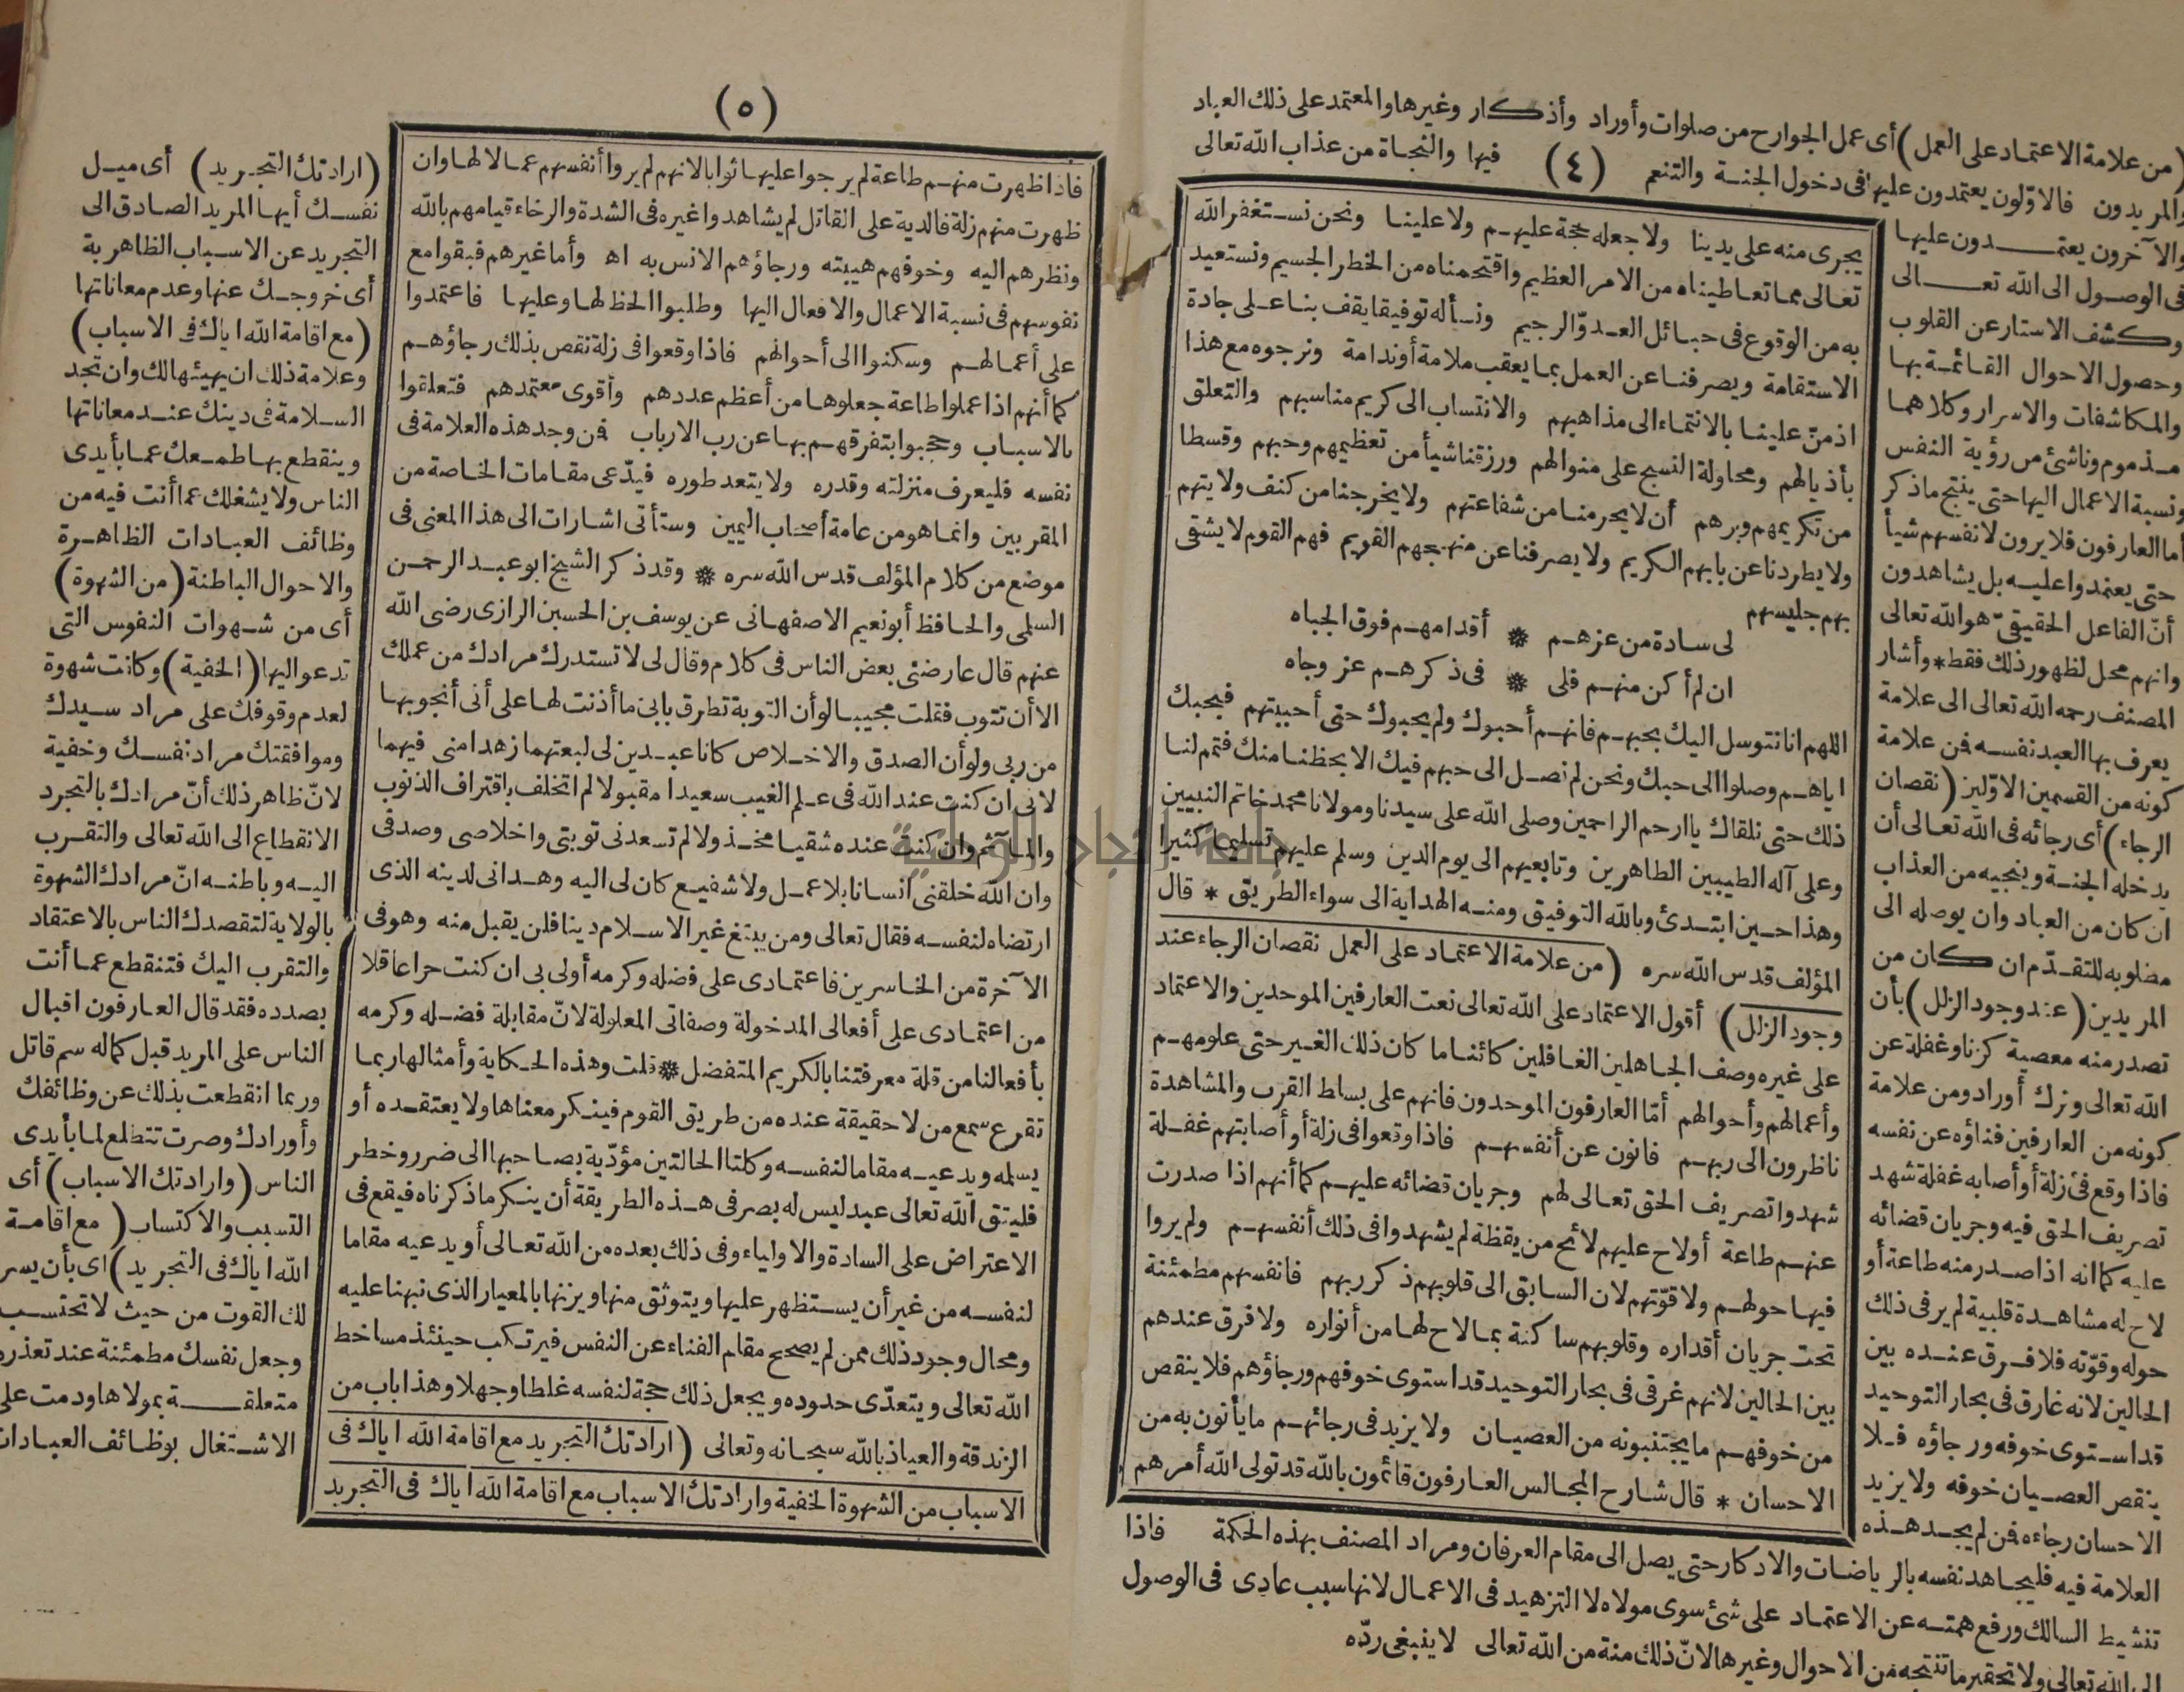 (من علامة الاعتماد على العمل) أى عمل الجوارح من صلوات وأوراد وأذكار وغيرها والمعتمد على ذلك العباد
والمريدون فالاوّلون يعتمدون عليها فى دخول الجنة والتنعم (٤) فيها والنجاة من عذاب الله تعالى
والآخرون يعتمدون عليها
فى الوصول الى الله تعالى
وكشف الاستار عن القلوب
وحصول الاحوال القائمة بها
والمكاشفات والاسرار وكلاهما
مذموم وناشئ من رؤية النفس
ونسبة الاعمال اليها حتى ينتج ماذكر
أما العارفون فلا يرون لانفسهم شيأ
حتى يعتمدوا عليه بل يشاهدون
أنّ الفاعل الحقيقىّ هو الله تعالى
وانهم محل لظهور ذلك فقط * وأشار
المصنف رحمه الله تعالى الى علامة
يعرف بها العبد نفسه فمن علامة
كونه من القسمين الاوّلين (نقصان
الرجاء) أى رجائه فى الله تعالى أن
يدخله الجنة وينجيه من العذاب
ان كان من العباد وان يوصله الى
مطلوبه للتقدّم ان كان من
المريدين (عند وجود الزلل) بأن
تصدر منه معصية كزنا وغفلة عن
الله تعالى وترك أوراد ومن علامة
كونه من العارفين فناؤه عن نفسه
فاذا وقع فى زلة أو أصابه غفلة شهد
تصريف الحق فيه وجريان قضائه
عليه كما انه اذا صدر منه طاعة أو
لاح له مشاهدة قلبية لم ير فى ذلك
حوله وقوّته فلا فرق عنده بين
الحالين لانه غارق فى بحار التوحيد
قد استوى خوفه ورجاؤه فلا
ينقص العصيان خوفه ولا يزيد
الاحسان رجاءه فمن لم يجد هذه
العلامة فيه فليجاهد نفسه بالرياضات والاذكار حتى يصل الى مقام العرفان ومراد المصنف بهذه الحكمة فاذا
تنشيط السالك ورفع همته عن الاعتماد على شئ سوى مولاه لا التزهيد فى الاعمال لانها سبب عادى فى الوصول
الى الله تعالى ولا تحقير ما تنتجه من الاحوال وغيرها لانّ ذلك منة من الله تعالى لا ينبغى ردّه
يجرى منه على يدينا ولا جعله حجة عليهم ولا علينا ونحن نستغفر الله
تعالى مما تعاطيناه من الامر العظيم واقتحمناه من الخطر الجسيم ونستعيذ
به من الوقوع فى حبائل العدوّ الرجيم ونسأله توفيقا يقف بنا على جادة
الاستقامة ويصرفنا عن العمل بما يعقب ملامة أو ندامة ونرجوه مع هذا
اذ منّ علينا بالانتماء الى مذاهبهم والانتساب الى كريم مناسبهم والتعلق
بأذيالهم ومحاولة النسج على منوالهم ورزقنا شيأ من تعظيمهم وحبهم وقسطا
من تكريمهم وبرهم أن لا يحرمنا من شفاعتهم ولا يخرجنا من كنف ولايتهم
ولا يطردنا عن بابهم الكريم ولا يصرفنا عن منهجهم القويم فهم القوم لا يشقى
بهم جليسهم
لى سادة من عزهم * أقدامهم فوق الجباه
ان لم أكن منهم فلى * فى ذكرهم عز وجاه
اللهم انا نتوسل اليك بحبهم فانهم أحبوك ولم يحبوك حتى أحببتهم فبحبك
اياهم وصلوا الى حبك ونحن لم نصل الى حبهم فيك الا بحظنا منك فتمم لنا
ذلك حتى نلقاك يا ارحم الراحمين وصلى الله على سيدنا ومولانا محمد خاتم النبيين
وعلى آله الطيبين الطاهرين وتابعيهم الى يوم الدين وسلم عليهم تسليما كثيرا
وهذا حين ابتدئ وبالله التوفيق ومنه الهداية الى سواء الطريق * قال
المؤلف قدس الله سره (من علامة الاعتماد على العمل نقصان الرجاء عند
وجود الزلل) أقول الاعتماد على الله تعالى نعت العارفين الموحدين والاعتماد
على غيره وصف الجاهلين الغافلين كائنا ما كان ذلك الغير حتى علومهم
وأعمالهم وأحوالهم أمّا العارفون الموحدون فانهم على بساط القرب والمشاهدة
ناظرون الى ربهم فانون عن أنفسهم فاذا وقعوا فى زلة أو أصابتهم غفلة
شهدوا تصريف الحق تعالى لهم وجريان قضائه عليهم كما أنهم اذا صدرت
عنهم طاعة أو لاح عليهم لائح من يقظة لم يشهدوا فى ذلك أنفسهم ولم يروا
فيها حولهم ولا قوّتهم لان السابق الى قلوبهم ذكر ربهم فانفسهم مطمئنة
تحت جريان أقداره وقلوبهم ساكنة بما لاح لها من أنواره ولا فرق عندهم
بين الحالين لانهم غرقى فى بحار التوحيد قد استوى خوفهم ورجاؤهم فلا ينقص
من خوفهم ما يجتنبونه من العصيان ولا يزيد فى رجائهم ما يأتون به من
الاحسان * قال شارح المجالس العارفون قائمون بالله قد تولى الله أمرهم
(٥)
فاذا ظهرت منهم طاعة لم يرجوا عليها ثوابا لانهم لم يروا أنفسهم عمالا لها وان
ظهرت منهم زلة فالدية على القاتل لم يشاهدوا غيره فى الشدة والرخاء قيامهم بالله
ونظرهم اليه وخوفهم هيبته ورجاؤهم الانس به اه وأما غيرهم فبقوا مع
نفوسهم فى نسبة الاعمال والافعال اليها وطلبوا الحظ لها وعليها فاعتمدوا
على أعمالهم وسكنوا الى أحوالهم فاذا وقعوا فى زلة نقص بذلك رجاؤهم
كما أنهم اذا عملوا طاعة جعلوها من أعظم عددهم وأقوى معتمدهم فتعلقوا
بالاسباب وحجبوا بتفرقهم بها عن رب الارباب فمن وجد هذه العلامة فى
نفسه فليعرف منزلته وقدره ولا يتعد طوره فيدّعى مقامات الخاصة من
المقربين وانما هو من عامة أصحاب اليمين وستأتى اشارات الى هذا المعنى فى
موضع من كلام المؤلف قدس الله سره * وقد ذكر الشيخ ابو عبد الرحمن
السلمى والحافظ أبو نعيم الاصفهانى عن يوسف بن الحسين الرازى رضى الله
عنهم قال عارضنى بعض الناس فى كلام وقال لى لا تستدرك مرادك من عملك
الا أن تتوب فقلت مجيبا لو أن التوبة تطرق بابى ما أذنت لها على أنى أنجو بها
من ربى ولو أن الصدق والاخلاص كانا عبدين لى لبعتهما زهدا منى فيهما
لانى ان كنت عند الله فى علم الغيب سعيدا مقبولا لم اتخلف باقتراف الذنوب
والمآثم وان كنت عنده شقيا مخذولا لم تسعدنى توبتى واخلاصى وصدقى
وان الله خلقنى انسانا بلا عمل ولا شفيع كان لى اليه وهدانى لدينه الذى
ارتضاه لنفسه فقال تعالى ومن يبتغ غير الاسلام دينا فلن يقبل منه وهو فى
الآخرة من الخاسرين فاعتمادى على فضله وكرمه أولى بى ان كنت حرا عاقلا
من اعتمادى على أفعالى المدخولة وصفاتى المعلولة لانّ مقابلة فضله وكرمه
بأفعالنا من قلة معرفتنا بالكريم المتفضل * قلت وهذه الحكاية وأمثالها ربما
تقرع سمع من لا حقيقة عنده من طريق القوم فينكر معناها ولا يعتقده أو
يسلمه ويدعيه مقاما لنفسه وكلتا الحالتين مؤدّية بصاحبها الى ضرر وخطر
فليتق الله تعالى عبد ليس له بصر فى هذه الطريقة أن ينكر ما ذكرناه فيقع فى
الاعتراض على السادة والاولياء وفى ذلك بعده من الله تعالى أو يدعيه مقاما
لنفسه من غير أن يستظهر عليها ويتوثق منها ويزنها بالمعيار الذى نبهنا عليه
ومحال وجود ذلك ممن لم يصحح مقام الفناء عن النفس فيرتكب حينئذ مساخط
الله تعالى ويتعدّى حدوده ويجعل ذلك حجة لنفسه غلطا وجهلا وهذا باب من
الزندقة والعياذ بالله سبحانه وتعالى (ارادتك التجريد مع اقامة الله اياك فى
الاسباب من الشهوة الخفية وارادتك الاسباب مع اقامة الله اياك فى التجريد
(ارادتك التجريد) أى ميل
نفسك أيها المريد الصادق الى
التجريد عن الاسباب الظاهرية
أى خروجك عنها وعدم معاناتها
(مع اقامة الله اياك فى الاسباب)
وعلامة ذلك ان يهيئها لك وان تجد
السلامة فى دينك عند معاناتها
وينقطع بها طمعك عما بأيدى
الناس ولا يشغلك عما أنت فيه من
وظائف العبادات الظاهرة
والاحوال الباطنة (من الشهوة)
أى من شهوات النفوس التى
تدعو اليها (الخفية) وكانت شهوة
لعدم وقوفك على مراد سيدك
وموافقتك مراد نفسك وخفية
لانّ ظاهر ذلك أنّ مرادك بالتجرد
الانقطاع الى الله تعالى والتقرب
اليه وباطنه انّ مرادك الشهوة
بالولاية لتقصدك الناس بالاعتقاد
والتقرب اليك فتنقطع عما أنت
بصدده فقد قال العارفون اقبال
الناس على المريد قبل كماله سم قاتل
وربما انقطعت بذلك عن وظائفك
وأورادك وصرت تتطلع لما بأيدى
الناس (وارادتك الاسباب) أى
التسبب والاكتساب (مع اقامة
الله اياك فى التجريد) اى بأن يسر
لك القوت من حيث لا تحتسب
وجعل نفسك مطمئنة عند تعذره
متعلقة بمولاها ودمت على
الاشتغال بوظائف العبادات
جامعة النجاح الوطنية